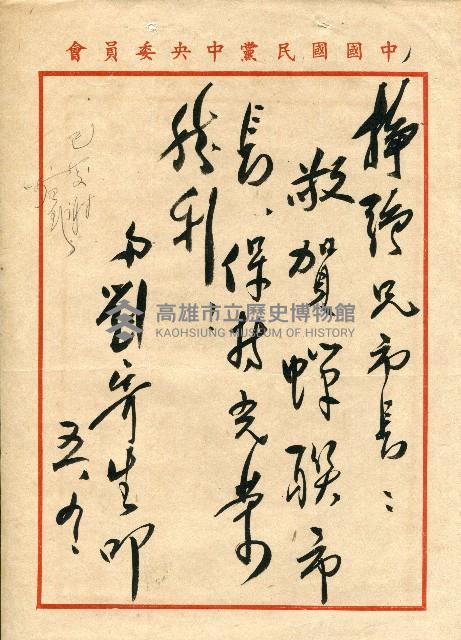 中國國民黨中央委員會
掙強兄市長：
敬賀蟬聯市
長、保持光榮
勝利！
弟劉寄生叩
五、九、
高雄市立歷史博物館
KAOHSIUNG MUSEUM OF HISTORY